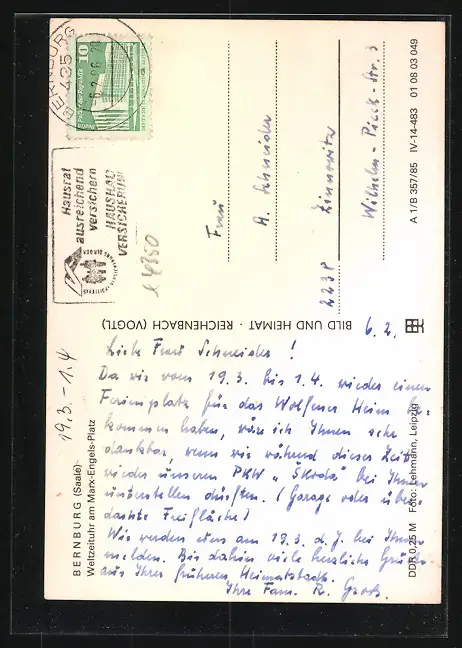 BERNBURG (Saale)
Weltzeituhr am Marx-Engels-Platz
19.3. – 1.4
6.2.
Liebe Frau Schneider!
Da wir vom 19.3. bis 1.4. wieder einen
Ferienplatz für das Wolfener Heim be-
kommen haben, wäre ich Ihnen sehr
dankbar, wenn wir während dieser Zeit
wieder unseren PKW "Škoda" bei Ihnen
unterstellen dürften. (Garage oder über-
dachte Freifläche)
Wir werden uns am 19.3. d.J. bei Ihnen
melden. Bis dahin viele herzliche Grüße
aus Ihrer früheren Heimatstadt.
Ihre Fam. R. Groß.
DDR 0,25 M Foto: Lehmann, Leipzig
BILD UND HEIMAT · REICHENBACH (VOGTL)
BERNBURG
435
-6.2.86
10
Hausrat
ausreichend
versichern
HAUSHALT
VERSICHERUNG
4350
Frau
A. Schneider
2238 Zinnowitz
Wilhelm-Pieck-Str. 3
A 1/B 357/85 IV-14-483 01 08 03 049